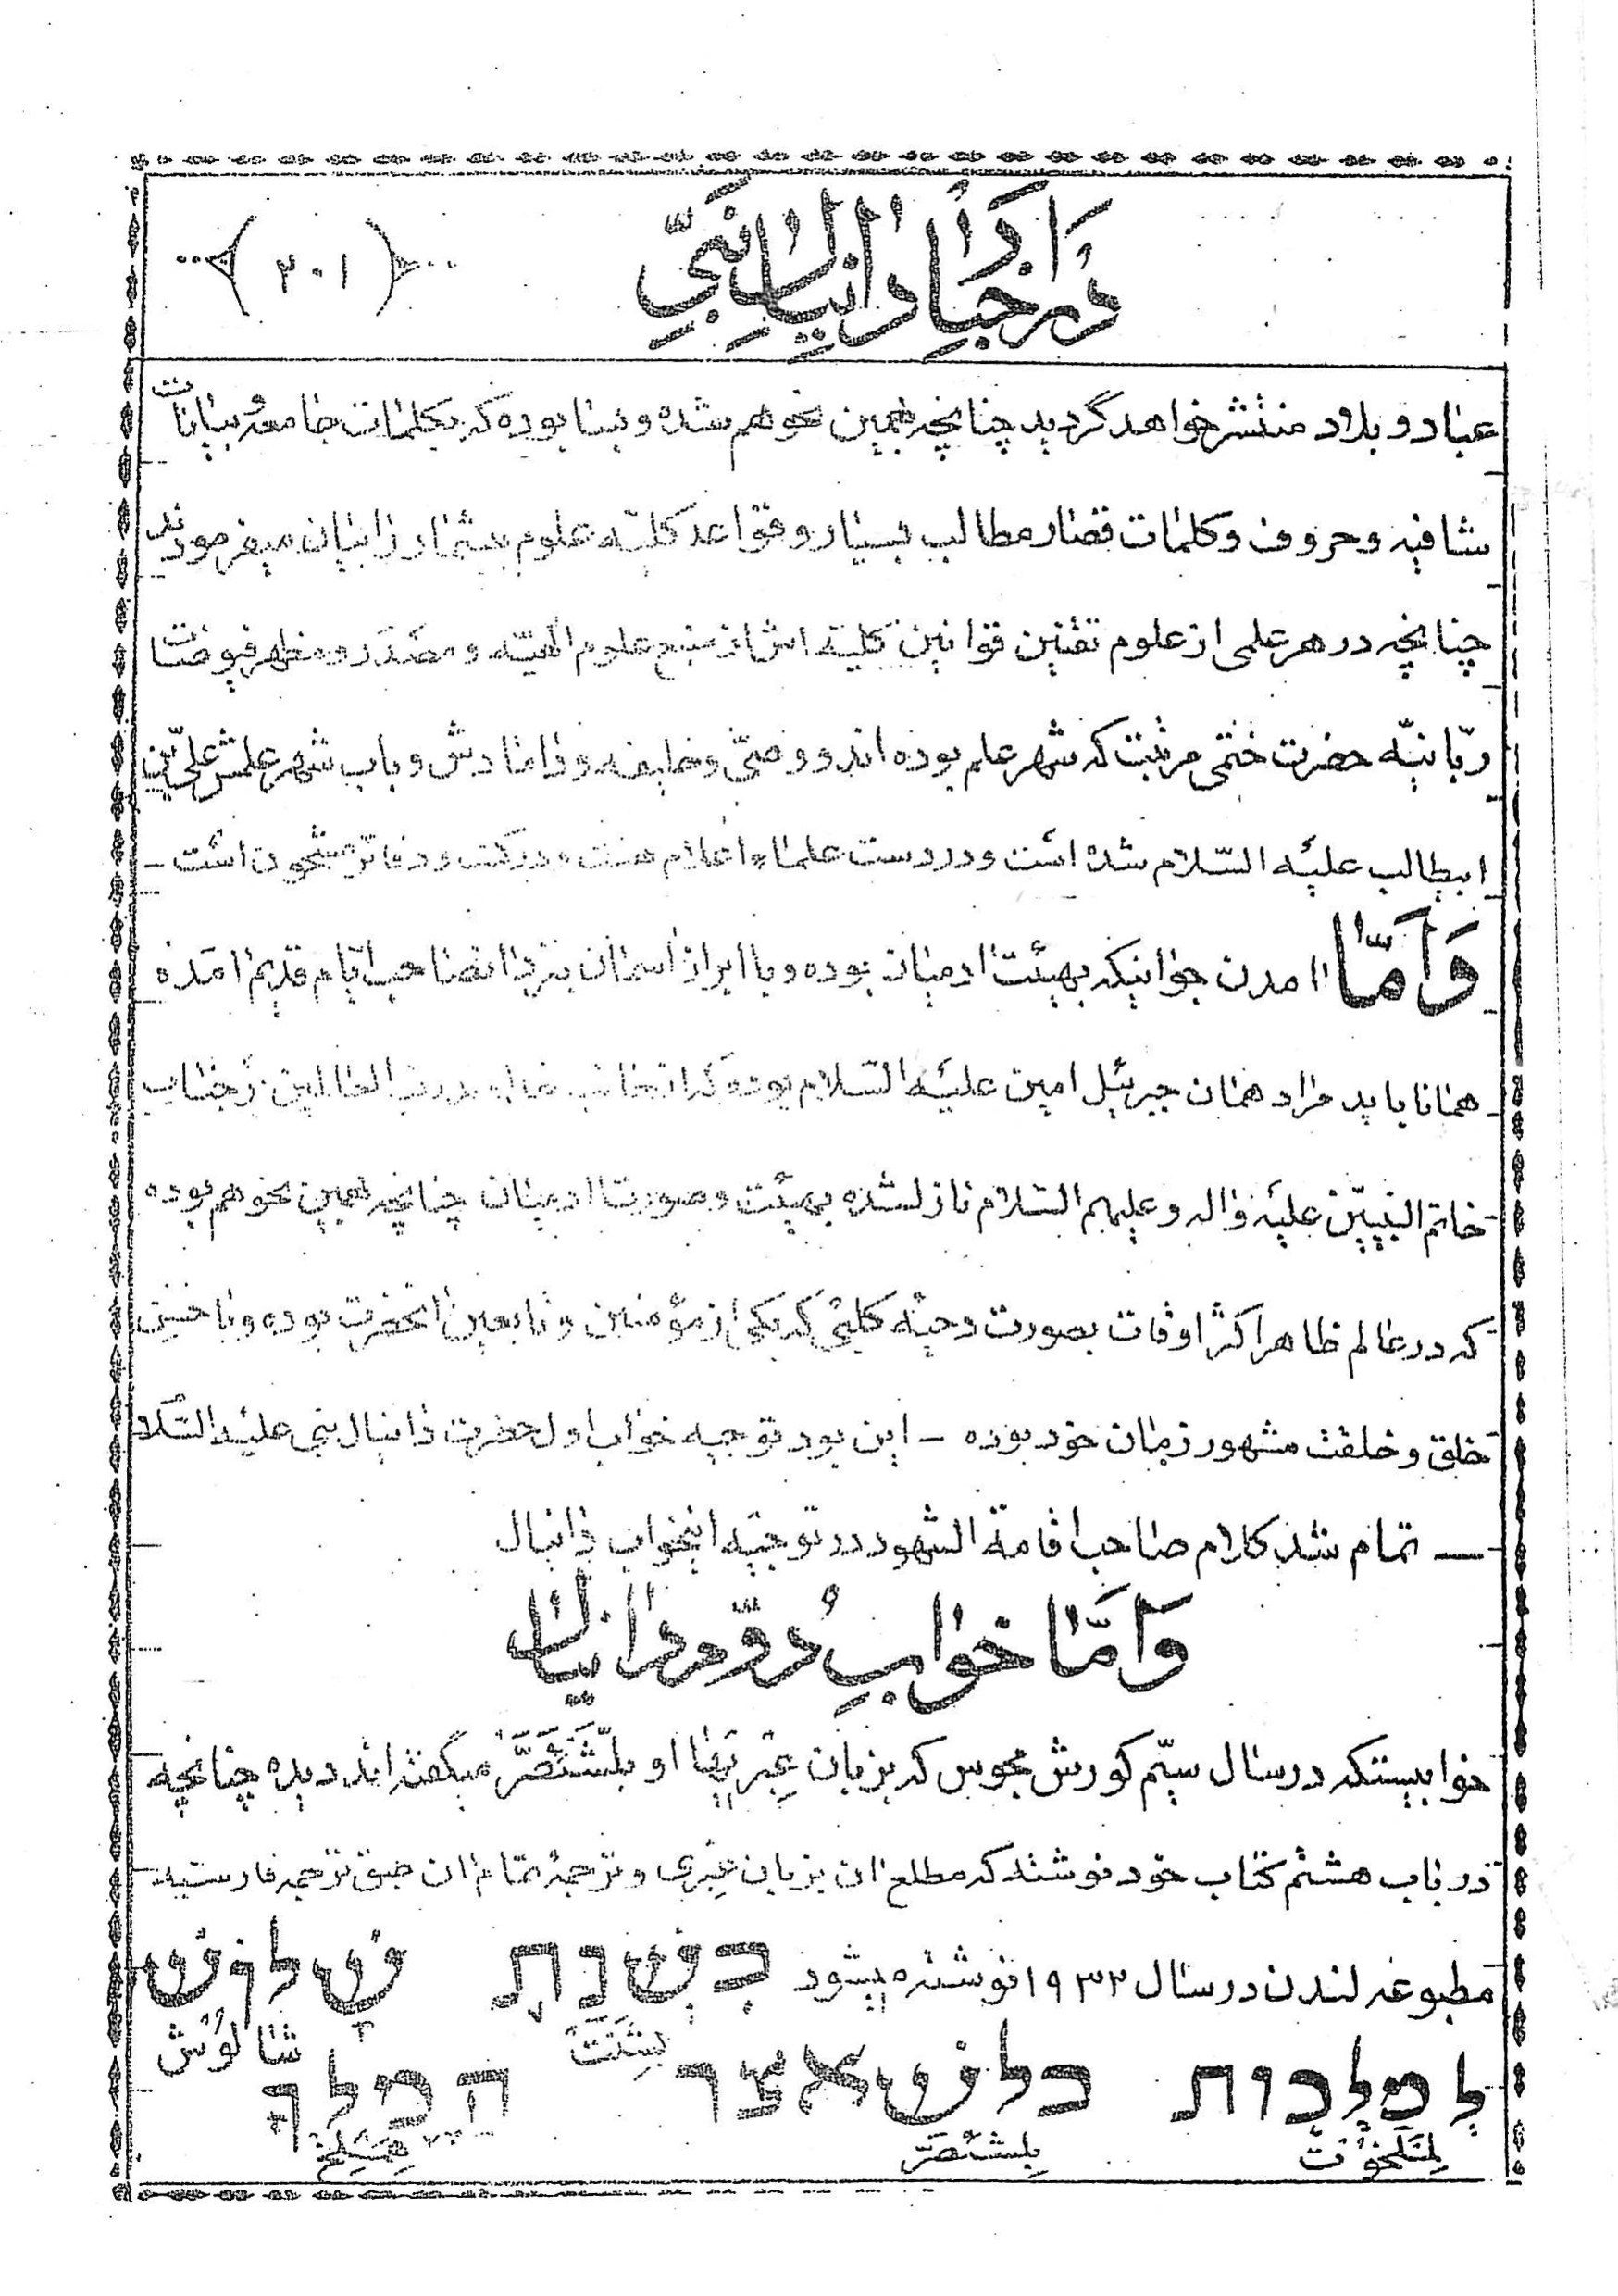 در اخبار دانیال نبی
(۲۰۱)
عباد و بلاد منتشر خواهد گردید چنانچه همین نحو هم شده و بنا بوده که بکلمات جامعه و بیانات
شافیه و حروف و کلمات قصار مطالب بسیار و قواعد کلیّه علوم بیشمار را بیان میفرمودند
چنانچه در هر علمی از علوم تقنین قوانین کلیه اش از منبع علوم الهیّه و مصدر و مظهر فیوضات
ربّانیّه حضرت ختمی مرتبت که شهر علم بوده اند و وصیّ و خلیفه و دامادش و باب شهر علمش علیّ بن
ابیطالب علیه السّلام شده است و در دست علماء اعلام هست و در کتب و دفاتر مشحون است –
وَ اَمّا امدن جوانیکه بهیئت ادمیان بوده و با ابر از اسمان بنزد انصاحب ایّام قدیم امده
همانا باید مراد همان جبرئیل امین علیه السّلام بوده که از جانب خداوند ربّ العالمین بر جناب
خاتم النبییّن علیه واله وعلیهم السّلام نازل شده بهیئت و صورت ادمیان چنانچه همین نحو هم بوده
که در عالم ظاهر اکثر اوقات بصورت دحیّه کلبی که یکی از مؤمنین و تابعین انحضرت بوده و باحسن
خلق و خلقت مشهور زمان خود بوده – این بود توجیه خواب اول حضرت دانیال نبی علیه السّلا
— تمام شد کلام صاحب اقامة الشهود در توجیه اینخواب دانیال
وَ اَمَّا خوابِ دُوّم دانیال
خوابیستکه در سال سیّم کورش مجوس که بزبان عِبْریها او بلشَّتْصَّرْ میگفته اند دیده چنانچه
در باب هشتم کتاب خود نوشته که مطلع ان بزبان عِبْری و ترجمهٔ تمام ان طبق ترجمه فارسیّه
مطبوعه لندن در سال ۱۹۳۲ نوشته میشود בשנת שלוש
بِشَنَتْ شالُوُش
למלכות בלשאצר המלך
لِمَلخُوُت بلشَصَر همِلِخ